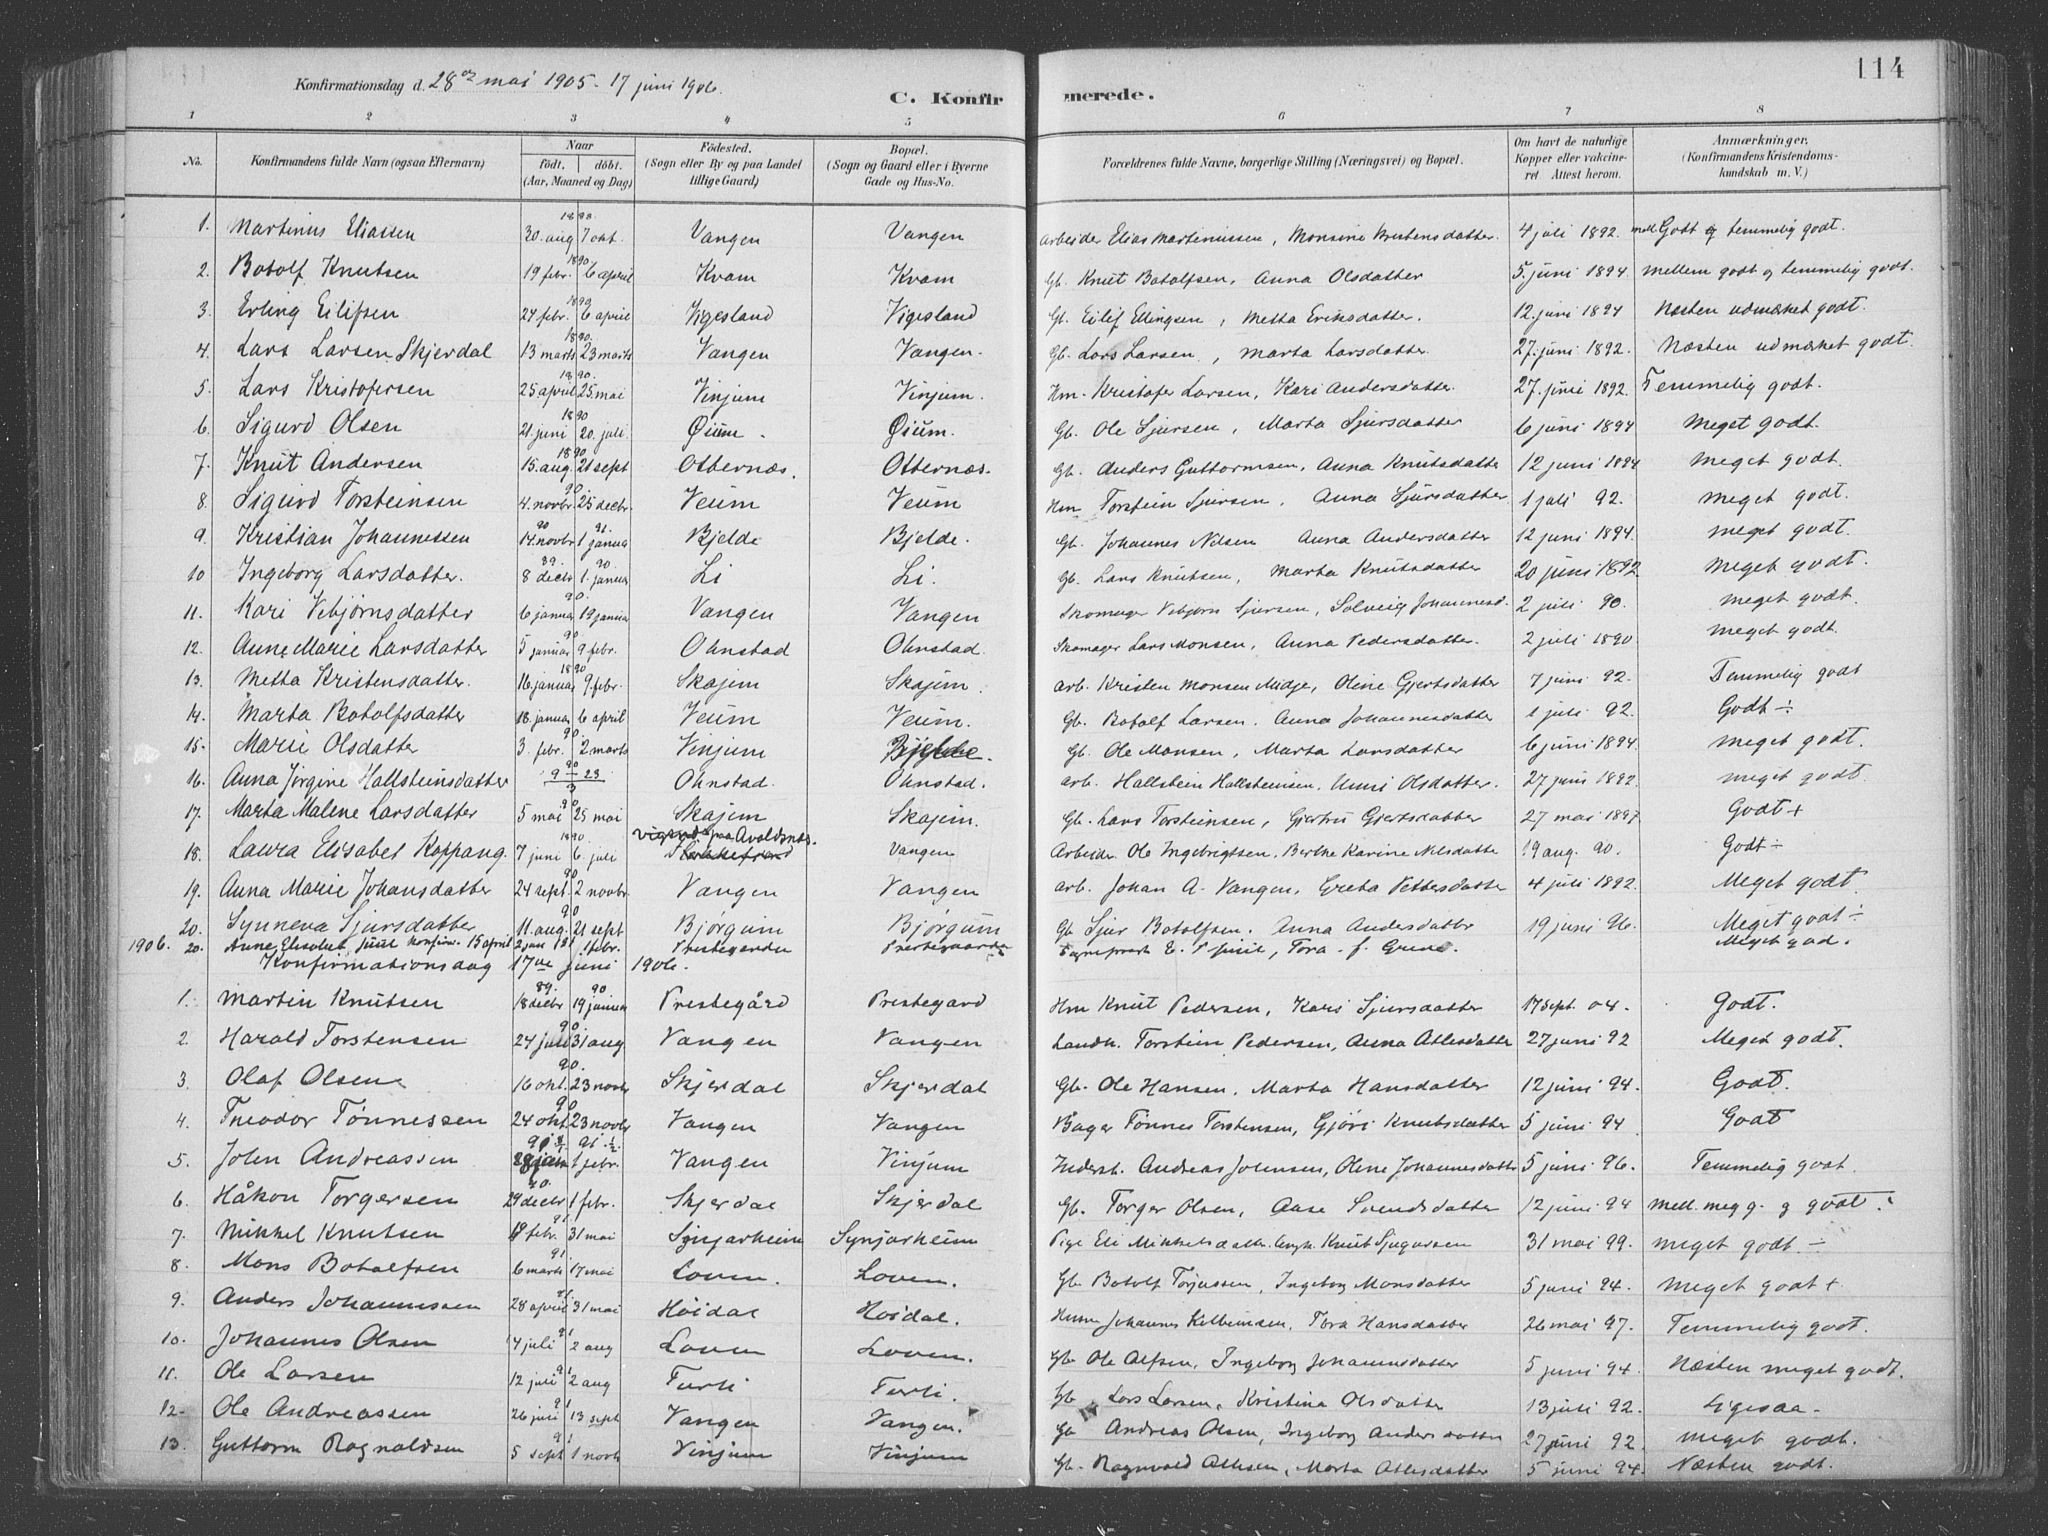 114
Konfirmationsdag d. 28de mai 1905 - 17 juni 1906.
C. Konfirmerede.
1 2 3 4 5 6 7 8
No. Konfirmandens fulde Navn (ogsaa Efternavn) Naar födt. döbt. (Aar, Maaned og Dag) Födested. (Sogn eller By og paa Landet tillige Gaard) Bopæl. (Sogn og Gaard eller i Byerne Gade og Hus-No. Forældrenes fulde Navne, borgerlige Stilling (Næringsvei) og Bopæl. Om havt de naturlige Kopper eller vakcineret. Attest herom. Anmærkninger. (Konfirmandens Kristendomskundskab m. V.)
1. Martinus Eliassen 1890 30. aug 7 okt. Vangen Vangen Arbeider Elias Martinussen, Monsine Kristensdatter. 4 juli 1892. mell. Godt og temmelig godt.
2. Botolf Knutsen 1890 19 febr. 6 april Kvam Kvam Gb. Knut Botolfsen, Anna Olsdatter 5. juni 1894. mellem godt og temmelig godt.
3. Erling Eilifsen 1890 24 febr. 6 april Vigesland Vigesland Gb. Eilif Ellingsen, Metta Eriksdatter. 12. juni 1894 Næsten udmærket godt.
4. Lars Larsen Skjerdal 1890. 13 marts 23 marts Vangen Vangen. Gb. Lars Larsen, Marta Larsdatter. 27. juni 1892. Næsten udmærket godt.
5. Lars Kristofersen 1890. 25 april 25. mai Vinjum Vinjum. Hm. Kristofer Larsen, Kari Andersdatter. 27. juni 1892. Temmelig godt.
6. Sigurd Olsen 1890 21. juni 20. juli. Øium. Øium. Gb. Ole Sjursen, Marta Sjursdatter 6 juni 1894 Meget godt.
7. Knut Andersen 1890 15. aug. 21 sept Otternæs. Otternæs. Gb. Anders Guttormsen, Anna Knutsdatter 12 juni 1894 Meget godt.
8. Sigurd Torsteinsen 90. 4. novbr. 25 decbr. Veum Veum Hm Torstein Sjursen, Anna Sjursdatter 1 juli 92. Meget godt.
9. Kristian Johannessen 90 91. 14. novbr 1 janua Bjelde Bjelde. Gb. Johannes Nilsen Anna Andersdatter 12 juni 1894. meget godt.
10 Ingeborg Larsdatter. 89. 90. 8 decbr 1. januar Li Li. Gb. Lars Knutsen, Marta Knutsdatter 20 juni 1892 Meget godt.
11. Kari Vebjørnsdatter 90. 6 janua 19 janua Vangen Vangen Skomager Vebjørn Sjursen, Solveig Johannesd. 2 juli 90. Meget godt.
12. Anne Marie Larsdatter 90 5 januar 9 febr. Ohnstad Ohnstad. Skomager Lars Monsen, Anna Pedersdatter. 2 juli 1890 Meget godt.
13. Metta Kristensdatter. 1890 16. januar 9. febr. Skajem Skajem. arb. Kristen Monsen Midje, Oline Gjertsdatter 7 juni 92. Temmelig godt
14. Marta Botolfsdatter 18. januar 6 april Veum Veum. Gb. Botolf Larsen. Anna Johannesdatter 1 juli 92. Godt ÷
15. Marie Olsdatter 90 3. febr. 2 marts Vinjum Bjelde. Gb. Ole Monsen, Marta Larsdatter 6 juni 1894. Meget godt.
16. Anna Jørgine Hallsteinsdatter 90 9 - 23 3 Ohnstad. Ohnstad. arb. Hallstein Hallsteinsen, Unni Olsdatter. 27 juni 1892. meget godt.
17. Marta Malene Larsdatter 90 5 mai 25 mai Skajem Skajem. Gb. Lars Torsteinsen, Gjertru Gjertsdatter 27 mai 1897 Godt +
18. Laura Elisabet Koppang. 1890. 7 juni 6 juli paa Avaldsnes. Vangen Arbeider Ole Ingebrigtsen, Berthe Karine Nilsdatter 19 aug. 90. Godt ÷
19. Anna Marie Johansdatter 90 24 sept. 2 novbr. Vangen Vangen arb. Johan A. Vangen, Greta Pettersdatter 4 juli 1892. Meget godt
20. Synneva Sjursdatter 90 11. aug. 21 sept Bjørgum Bjørgum Gb Sjur Botolfsen. Anna Andersdatter 19 juni 96. Meget godt ÷
1906. 20. Anne Elisabet Juul konfirm. 15 april 2 jan 1 febr. Prestegarden Prestegaarden Sogneprest E. P. Juul, Tora f. Meget god.
Konfirmationsdag 17de juni 1906.
1. Martin Knutsen 89. 90 18 decbr 19 januar Prestegård Prestegard Hm Knut Pedersen, Kari Sjursdatter 17 sept. 04. Godt.
2. Harald Torstensen 90. 24 juni 31 aug Vangen Vangen Landh. Torstein Pedersen, Anna Atlesdatter 27 juni 92 Meget godt.
3. Olaf Olsen 90. 16 okt. 23 novb Skjerdal Skjerdal Gb. Ole Hansen, Marta Hansdatter 12 juni 94. Godt.
4. Theodor Tønnessen 90 24 okt. 23 novbr Vangen Vangen Bager Tønnes Torstensen, Gjøri Knutsdatter 5 juni 94. Godt
5. Jolen Andreassen 91 1 febr. Vangen Vinjum Inderst. Andreas Jolensen, Oline Johannesdatter 5 juni 96. Temmelig godt.
6. Håkon Torgersen 90. 29 decbr 1 febr. Skjerdal Skjerdal Gb. Torger Olsen, Aase Svendsdatter 12 juni 94 mell. meg g. g godt.
7. Mikkel Knutsen 91. 18 febr. 31 mai Synjarheim Synjarheim Pige Eli Mikkelsdatter. Knut Sjugursen 31 mai 99. meget godt. ÷
8. Mons Botolfsen 91. 6 marts 17 mai Loven. Loven. Gb. Botolf Torjussen, Ingeborg Monsdatter 5 juni 94. Meget godt +
9. Anders Johannessen 91. 28 april 31 mai Høidal Høidal. Johannes Kolbeinsen, Tora Hansdatter 26 mai 97. Temmelig godt.
10. Johannes Olsen 91 4 juli 2 aug Loven Loven. Gb Ole Alfsen, Ingeborg Johannesdatter 5 juni 94. Næsten meget godt.
11. Ole Larsen 91 12 juli 2 aug Turli Turli. Gb Lars Larsen, Kristina Olsdatter 13 juli 92. Ligesaa.
12. Ole Andreassen 91 26 juli 13 sept Vangen Vangen. Gb Andreas Olsen, Ingeborg Andersdatter 27 juni 92. meget godt.
13. Guttorm Ragnvaldsen 91 5 sept 1 novb Vinjum Vinjum Gb. Ragnvald Atlesen, Marta Atlesdatter 5 juni 94. Næsten godt.